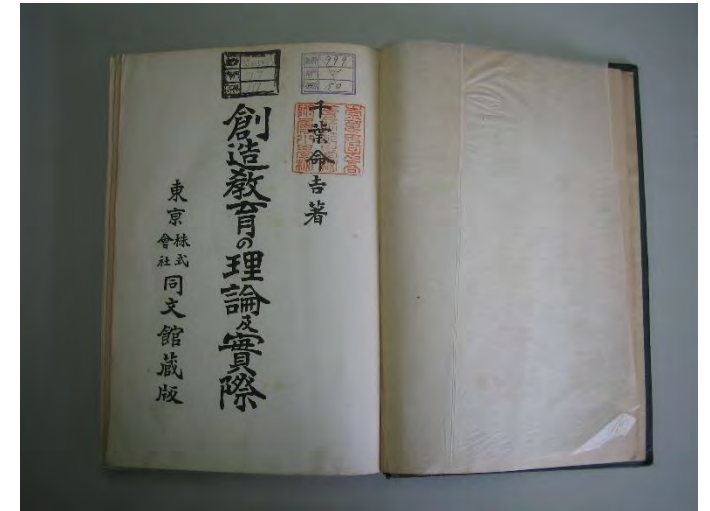 千葉命吉著
創造教育の理論及實際
東京株式會社同文館蔵版